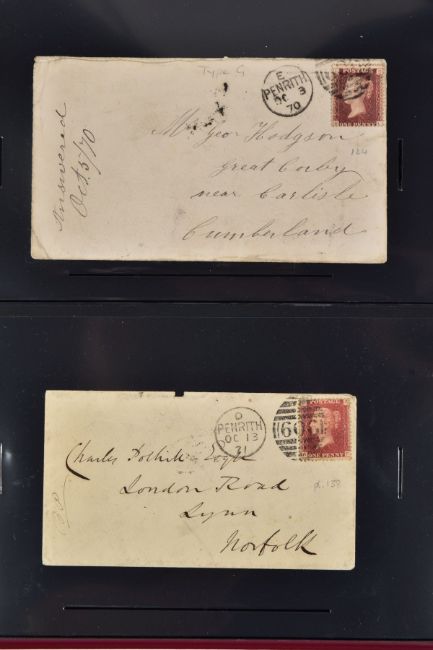 Type G
E
PENRITH
OC 3
70
POSTAGE
ONE PENNY
124
Answered
Oct 5/70
Mr Geo Hodgson
great Corby
near Carlisle
Cumberland
D
PENRITH
OC 13
71
POSTAGE
ONE PENNY
Charles Esqre
London Road
Lynn
Norfolk
pl. 138